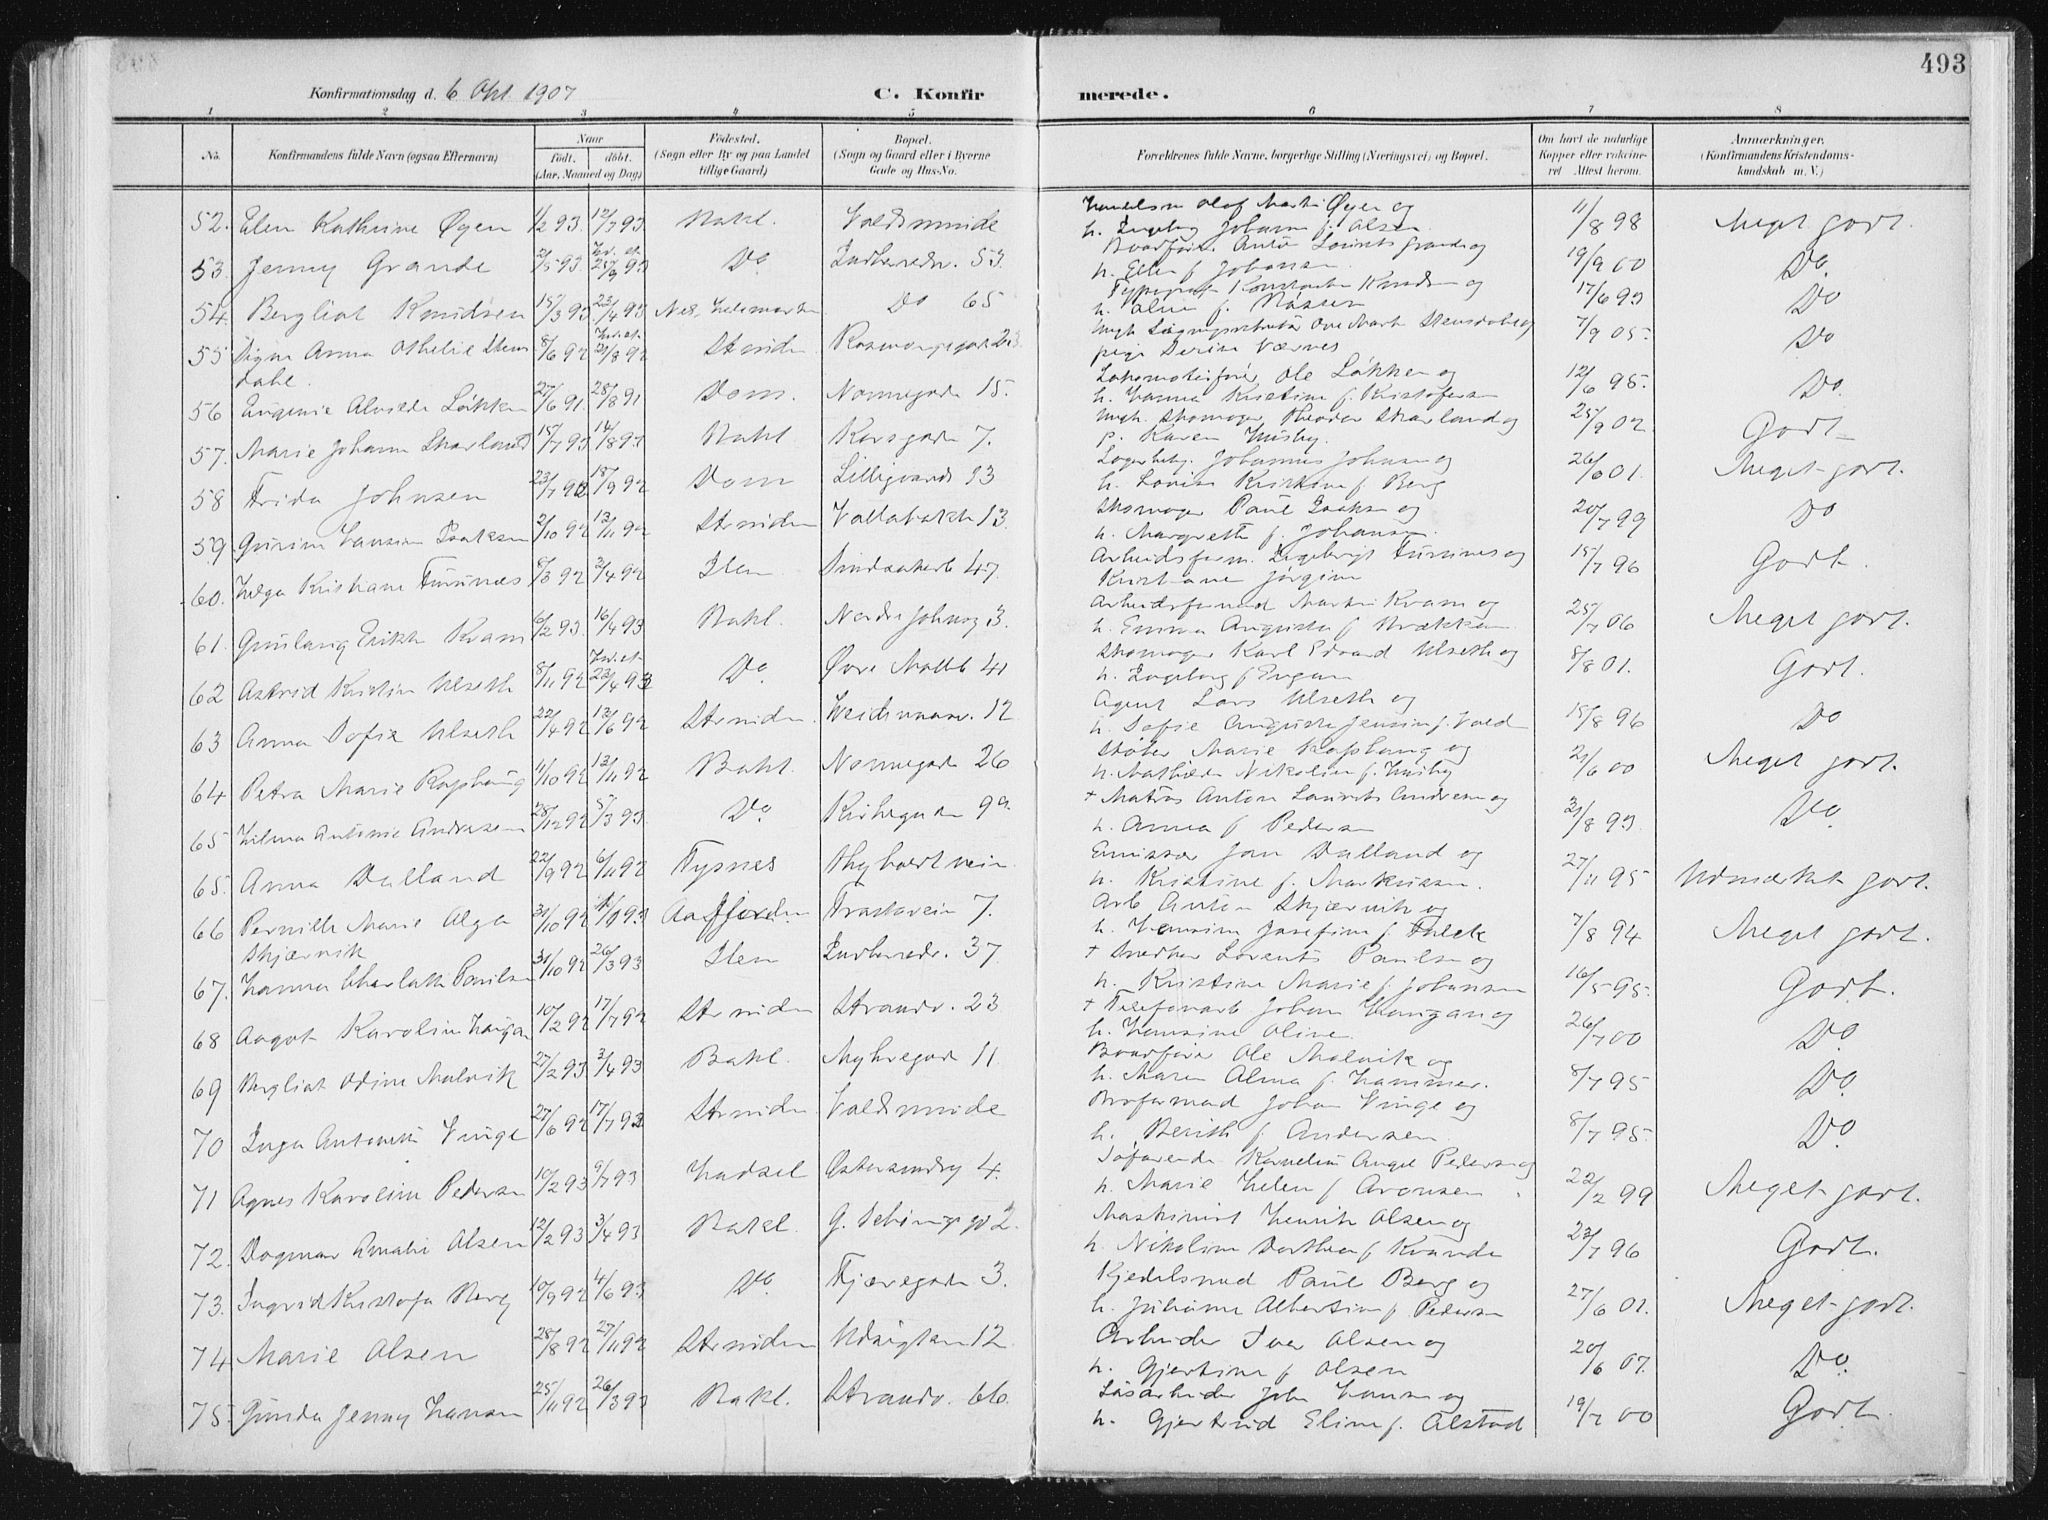 493
Konfirmationsdag d. 6 Okt. 1907 C. Konfirmerede.
1 2 3 4 5 6 7 8
No. Konfirmandens fulde Navn (ogsaa Efternavn) Naar födt. döbt. (Aar, Maaned og Dag) Födested. (Sogn eller By og paa Landet tillige Gaard) Bopæl. (Sogn og Gaard eller i Byerne Gade og Hus-No. Forældrenes fulde Navne, borgerlige Stilling (Næringsvei) og Bopæl. Om havt de naturlige Kopper eller vakcineret Attest herom. Anmærkninger. (Konfirmandens Kristendomskundskab m. V.)
52. Elen Kathrine Øyen 1/2 93. 12/3 93. Bakl. Valdsminde Olof Martin Øyen og 11/8 98 Meget godt.
h. Ingeborg Johanna f. Olsen
53. Jenny Grande 2/5 93. 93 Do Indherredv. 53. Anton Laurits Grande og 19/9 00 Do.
h. Ellen f. Johansen
54. Bergliot Knudsen 15/3 93 23/4 93 Do 65 Typograf Knudsen og 17/6 93 Do
h. f. Næssen
55 Signe Anna Othelie Stens 8/6 92 21/8 92 Strinden 7/9 05. Do
dahl. pige Værnes
56 Eugenie Løkken 27/6 91. 28/8 91 Dom. Nonnegade 15. Lokomotivfører Ole Løkken og 12/6 95. Do
h. Hanna Kristine f. Kristofersen
57. Marie Johanne Skarland 15/7 93 14/8 93 Bakl Korsgade 7. Skomager Theodor Skarland og 25/9 02 Godt
p. Karen Husby.
58 Frida Johnsen 23/7 92 18/9 92 Dom Lilligaards 13 Johannes Johnsen og 26/6 01. Meget godt.
h. Lovise Kristine f. Berg
59. Isaksen 2/10 92 13/11 92 Strinden Vollabakken 13. Skomager Paul Isaksen og 20/7 99 Do
h. Margrethe f. Johansen.
60. Helga Kristiane Furunes 8/3 92 3/4 92 Ilen 47. Arbeidsform. Ingebrigt Furunes og 15/7 96 Godt.
Kristiane Jørgine
61. Gunlaug Kvam 6/2 93. 16/4 93 Bakl. Nordre 3. Arbeidsformand Martin Kvam og 25/7 06 Meget godt.
h. Emma Augusta f. Brækken
62 Astrid Kristine Ulseth 8/11 92 23/4 93 Do Øvre Møllb 41 Skomager Karl Edvard Ulseth og 8/8 01. Godt.
h. Ingeborg f.
63 Anna Sofie Ulseth 22/4 92 13/6 92 Strinden. Weidemannsv. 12 Agent Lars Ulseth og 15/8 96 Do
h. Sofie Augusta Jensine f. Vold
64 Petra Marie Kopshaug 11/10 92 13/11 92 Bakl. Nonnegade 26 Støber Kopshaug og 2/6 00 Meget godt.
h. Nikoline f. Husby
65. Hilma Antonie Andresen 28/12 92 5/3 93. Do. Kirkegaden 9a + Matros Anton Laurits Andresen og 31/8 93 Do.
h. Anna f. Pedersen
65. Anna Dalland 22/9 92 6/11 92 Tysnes Thyholtvein Emissær Jan Dalland og 27/11 95 Udmærket godt.
h. Kristine f. Markussen.
66 Pernille Marie Alga 31/10 92 Aafjorden Frostavein 7. Arb Anton Skjærvik og 7/8 94 Meget godt.
Skjærvik h. Hansine Josefine f. Falck
67. Hanna Charlotte Paulsen 31/10 92 26/3 93 Ilen Indherredv. 37. + Snedker Lorents Paulsen og 16/5 95. Godt.
h. Kristine Marie f. Johansen
68 Aagot Karoline Haugan 10/2 92 17/7 92 Strinden Strandv. 23 + Telefonarb Johan Haugan og 26/7 00 Do
h. Hansine Oline
69 Bergliot Odine Malvik 27/2 93 3/4 93 Bakl. Myhregade 11 Ole Malvik og 8/7 95 Do.
h. Maren Alma f. Hammer.
70 Inga Antonette Vinge 27/6 92 17/7 92 Strinden Valdsminde Broformand Johan Vinge og 8/7 95. Do.
h. Berith f. Andersen
71 Agnes Karoline Pedersen 10/2 93 9/7 93 Hadsel Østersundsg 4. Søfarende Kornelius Angel Pedersen og 22/2 99 Meget godt.
h. Marie Helene f Aronsen
72. Dagmar Amalie Olsen 12/2 93 3/4 93 Bakl. G. 2. Maskinist Henrik Olsen og 23/7 96 Godt.
h. Nikoline Dorthea f. Kvande
73. Ingrid Kristofa Berg 10/9 92 4/6 93 Do. Fjæregade 3. Kjedelsmed Paul Berg og 27/6 01. Meget godt.
h. Juliane Albertine f. Pedersen
74 Marie Olsen 28/8 92 27/11 92 Strinden Udsigten 12 Arbeider Iver Olsen og 20/6 07. Do.
h. Gjertine f. Olsen
75. Gunda Jenny Hansen 25/11 92 26/3 93 Bakl. Strandv. 66. Løsarbeider John Hansen og 19/7 00 Godt.
h. Gjertrud Eline f. Alstad